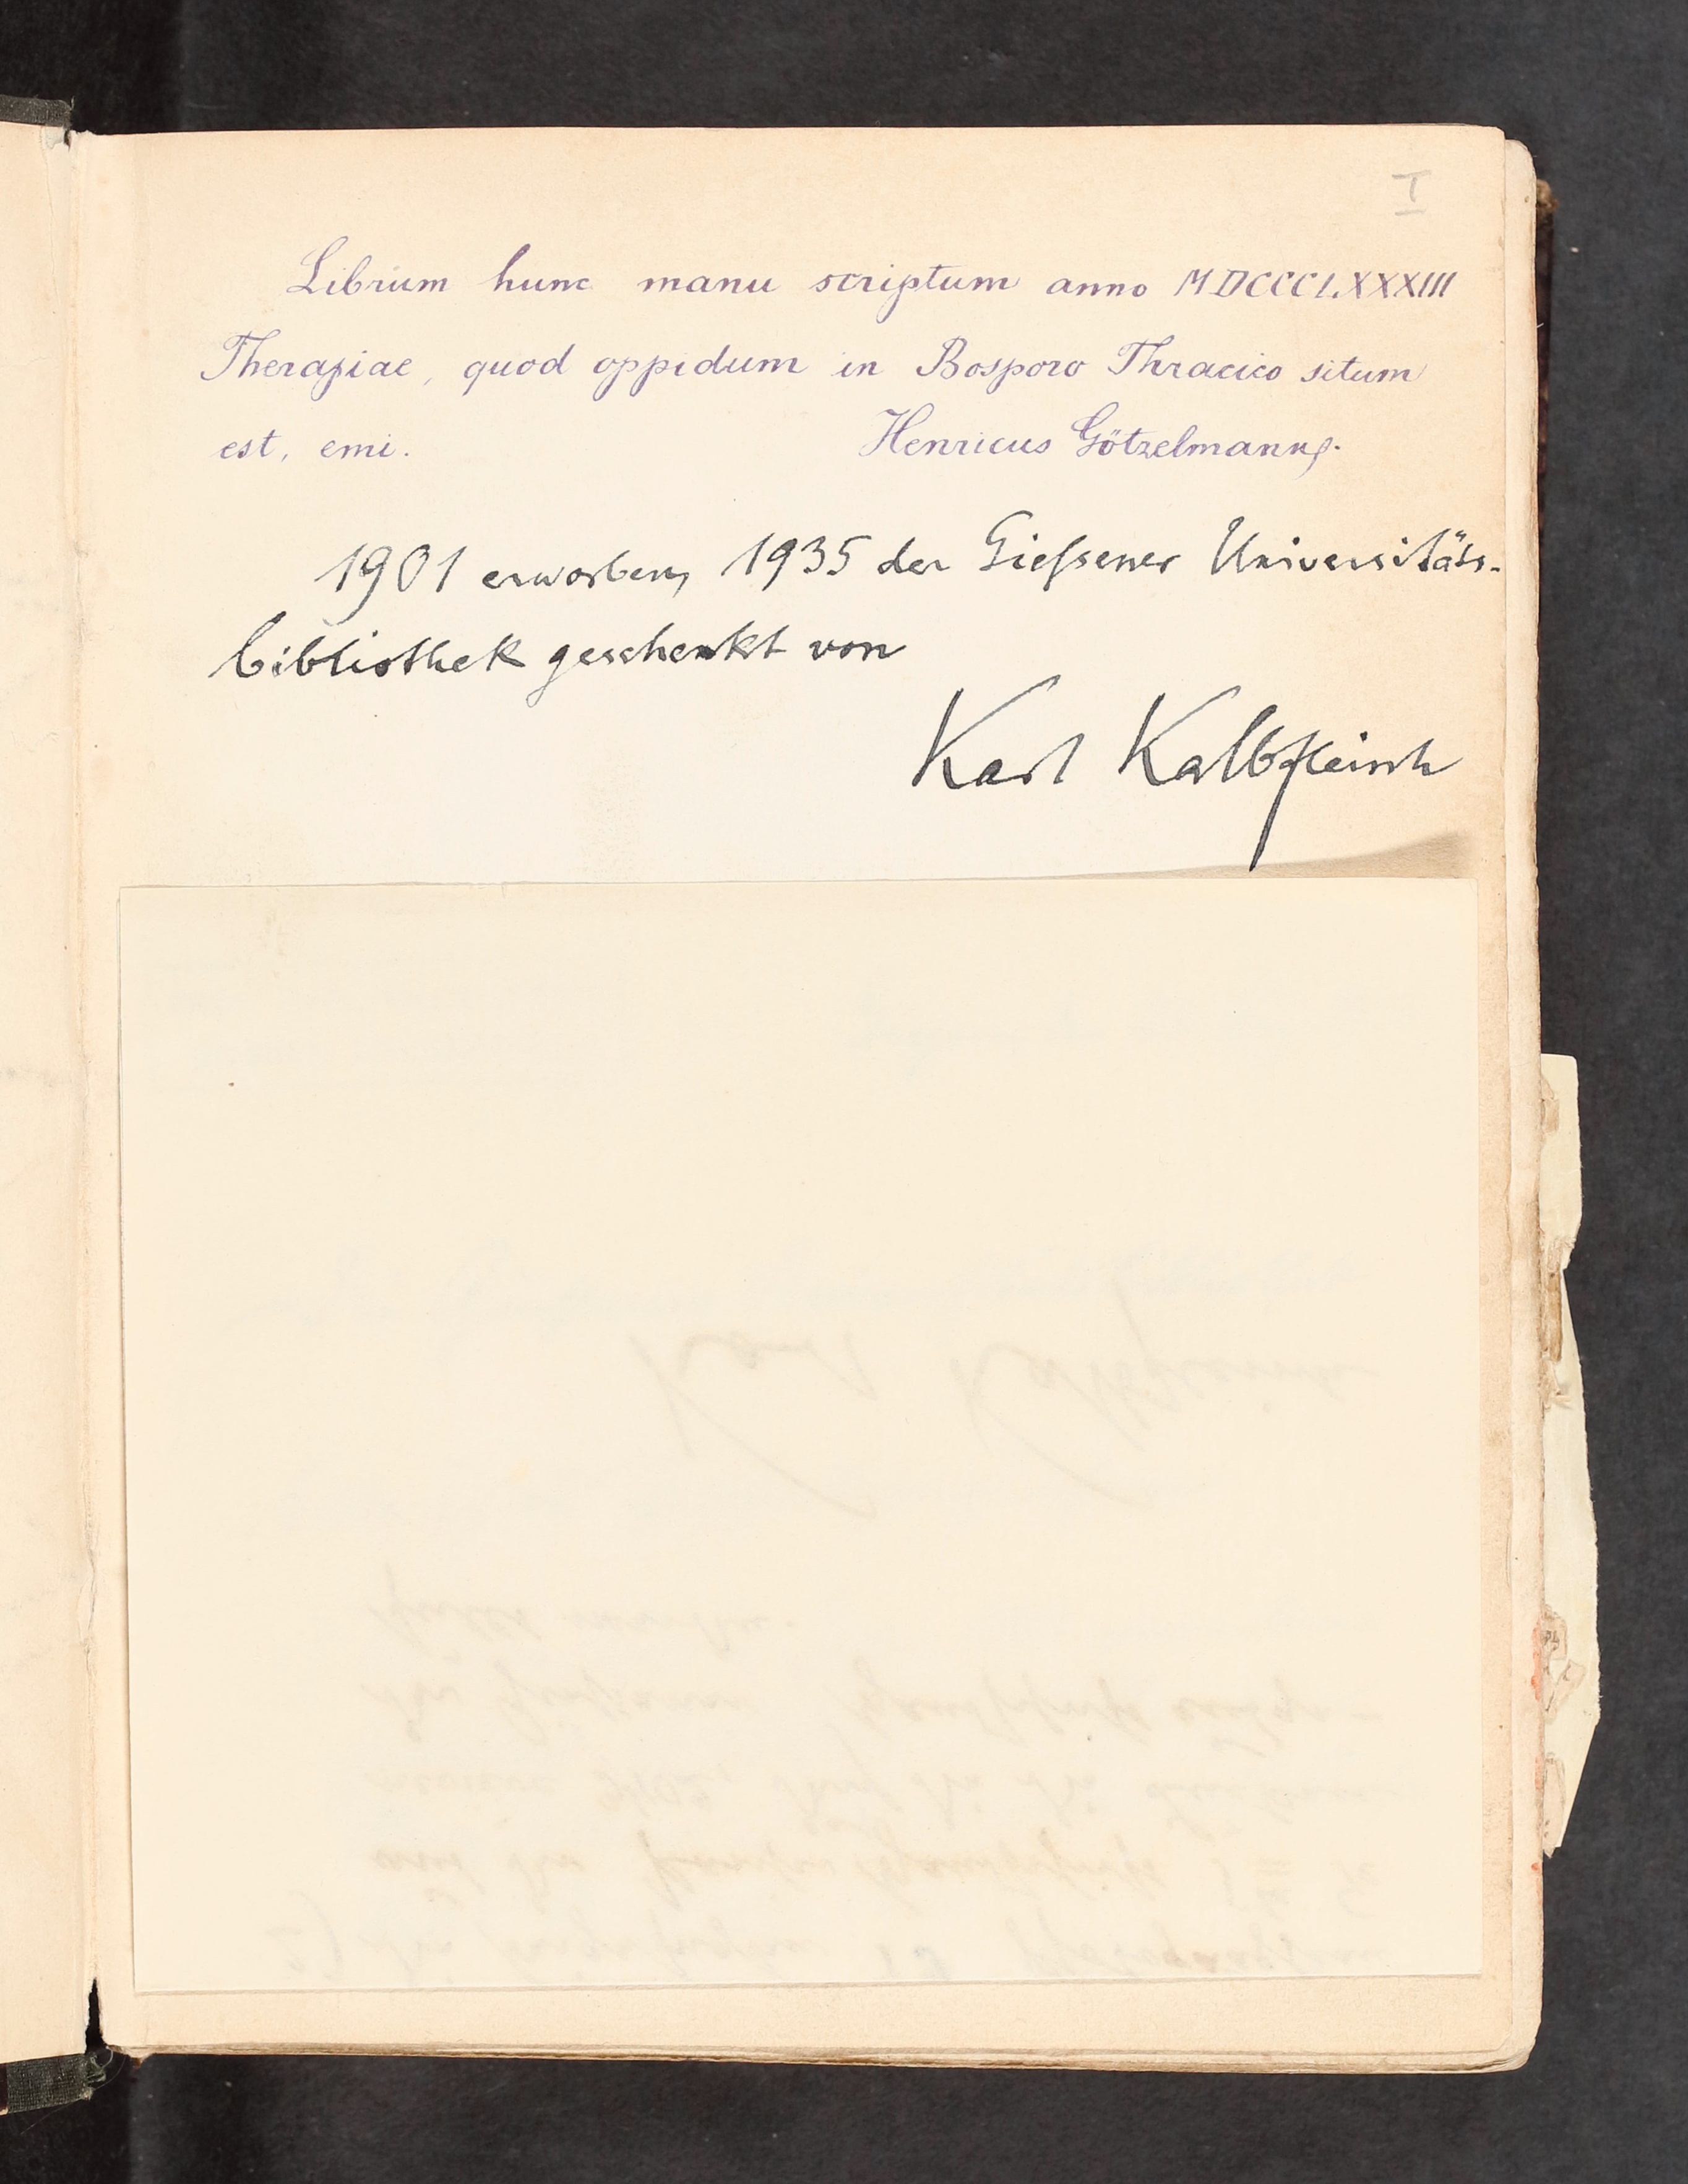 I
Librum hunc manu scriptum anno MDCCCLXXXIII
Therapiae, quod oppidum in Bosporo Thracico situm
est, emi. Henricus Götzelmann
1901 erworben, 1935 der Gießener Universitäts-
bibliothek geschenkt von
Karl Kalbfleisch